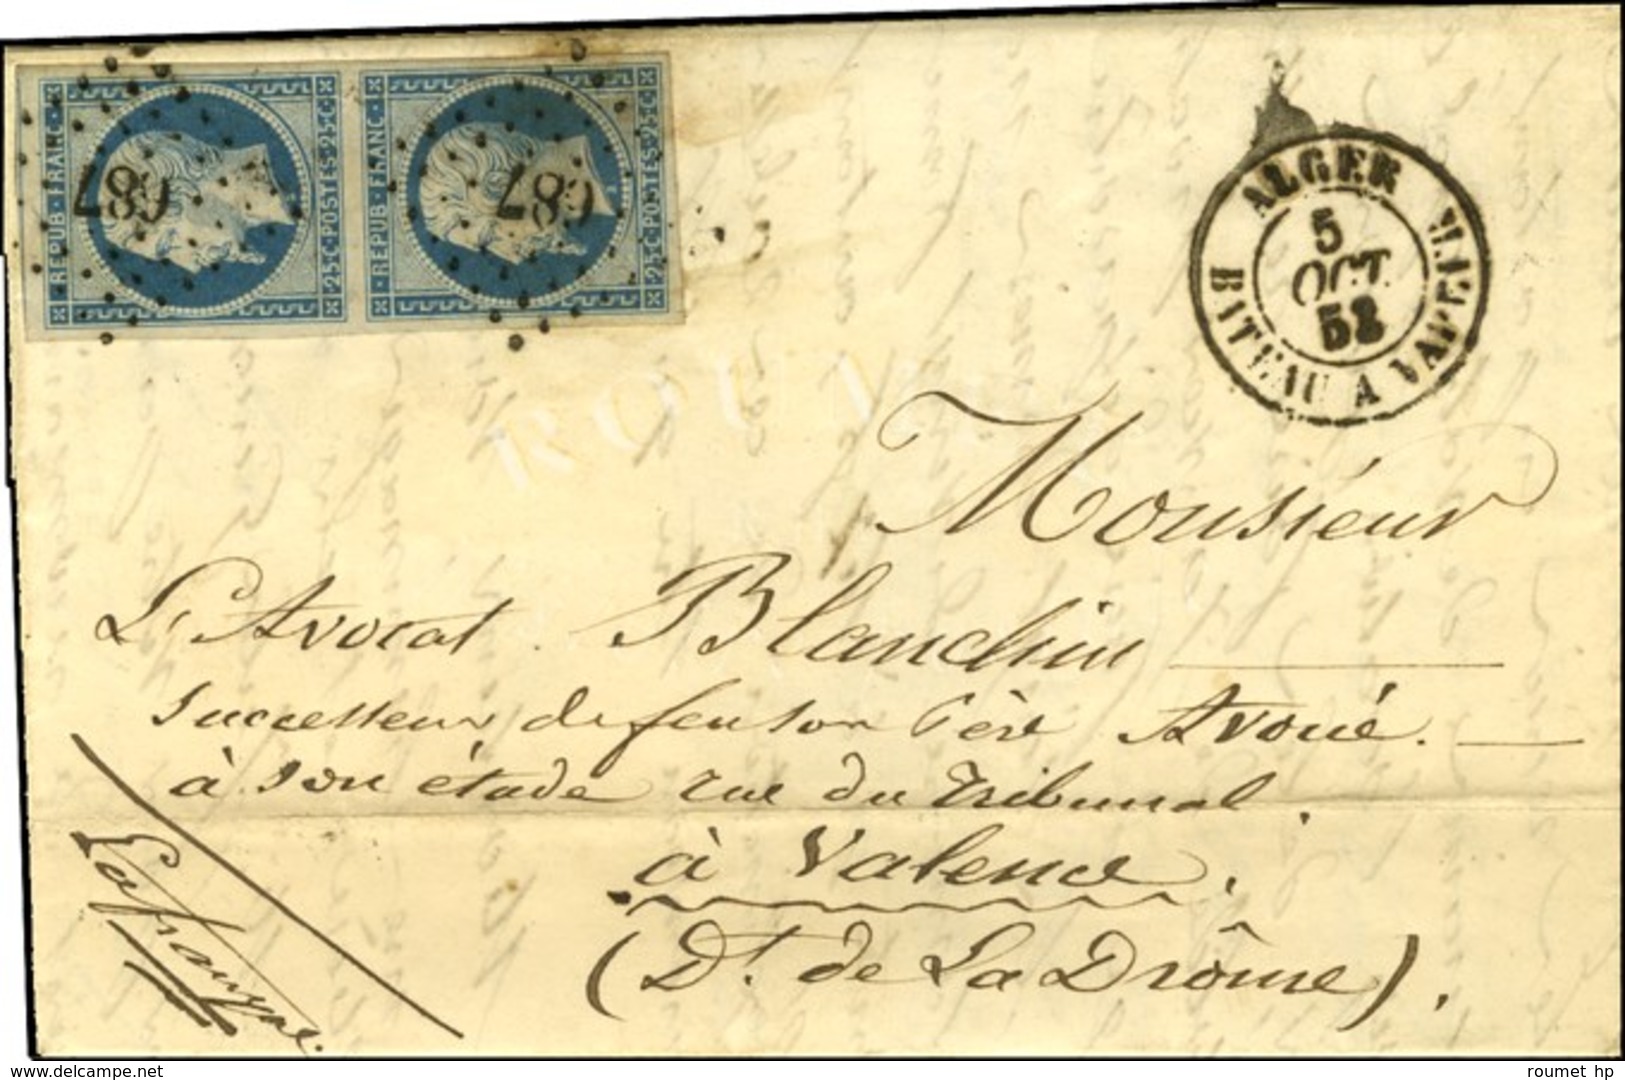 REPUB·FRANC· 25·C·POSTES·25·C·
REPUB·FRANC· 25·C·POSTES·25·C·
687
687
ALGER
5
OCT.
52
BATEAU A VAPEUR
Monsieur
L'Avocat Blanchin
successeur de fen son Père Avoué.
à son étude rue du Tribunal.
à Valence.
(Dt. de La Drôme).
Lafrangue.
delcampe.net
roumet hp